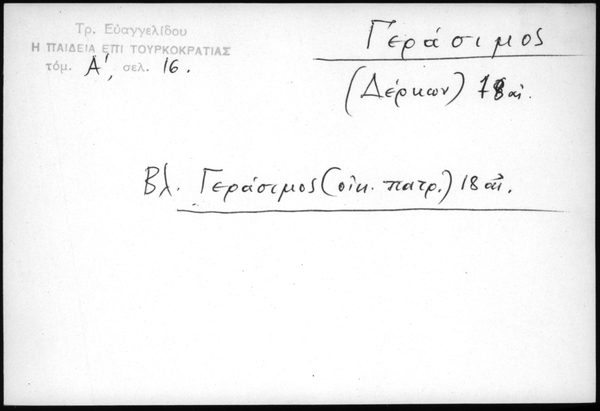 Τρ. Εὐαγγελίδου
Η ΠΑΙΔΕΙΑ ΕΠΙ ΤΟΥΡΚΟΚΡΑΤΙΑΣ
τόμ. Α', σελ. 16.
Γεράσιμος
(Δέρκων) 18 αἰ.
Βλ. Γεράσιμος (οἰκ. πατρ.) 18 αἰ.